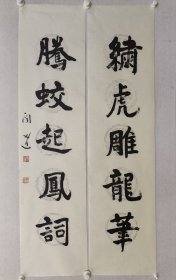 繡虎雕龍筆
騰蛟起鳳詞